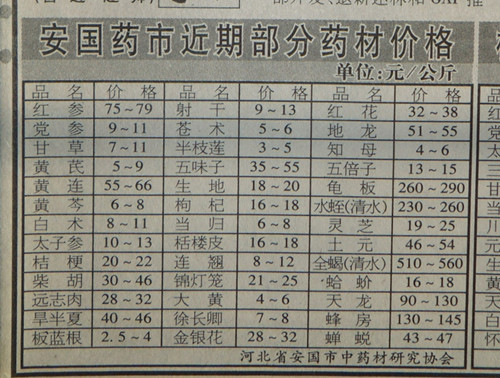 安国药市近期部分药材价格
单位:元/公斤
品名 价格 品名 价格 品名 价格
红参 75~79 射干 9~13 红花 32~38
党参 9~11 苍术 5~6 地龙 51~55
甘草 7~11 半枝莲 3~5 知母 4~6
黄芪 5~9 五味子 35~55 五倍子 13~15
黄连 55~66 生地 18~20 龟板 260~290
黄芩 6~8 枸杞 16~18 水蛭(清水) 230~260
白术 8~11 当归 6~8 灵芝 19~25
太子参 10~13 栝楼皮 16~18 土元 46~54
桔梗 20~22 连翘 8~12 全蝎(清水) 510~560
柴胡 30~46 锦灯笼 21~25 蛤蚧 16~18
远志肉 28~32 大黄 4~6 天龙 90~130
旱半夏 40~46 徐长卿 7~8 蜂房 130~145
板蓝根 2.5~4 金银花 28~32 蝉蜕 43~47
河北省安国市中药材研究协会